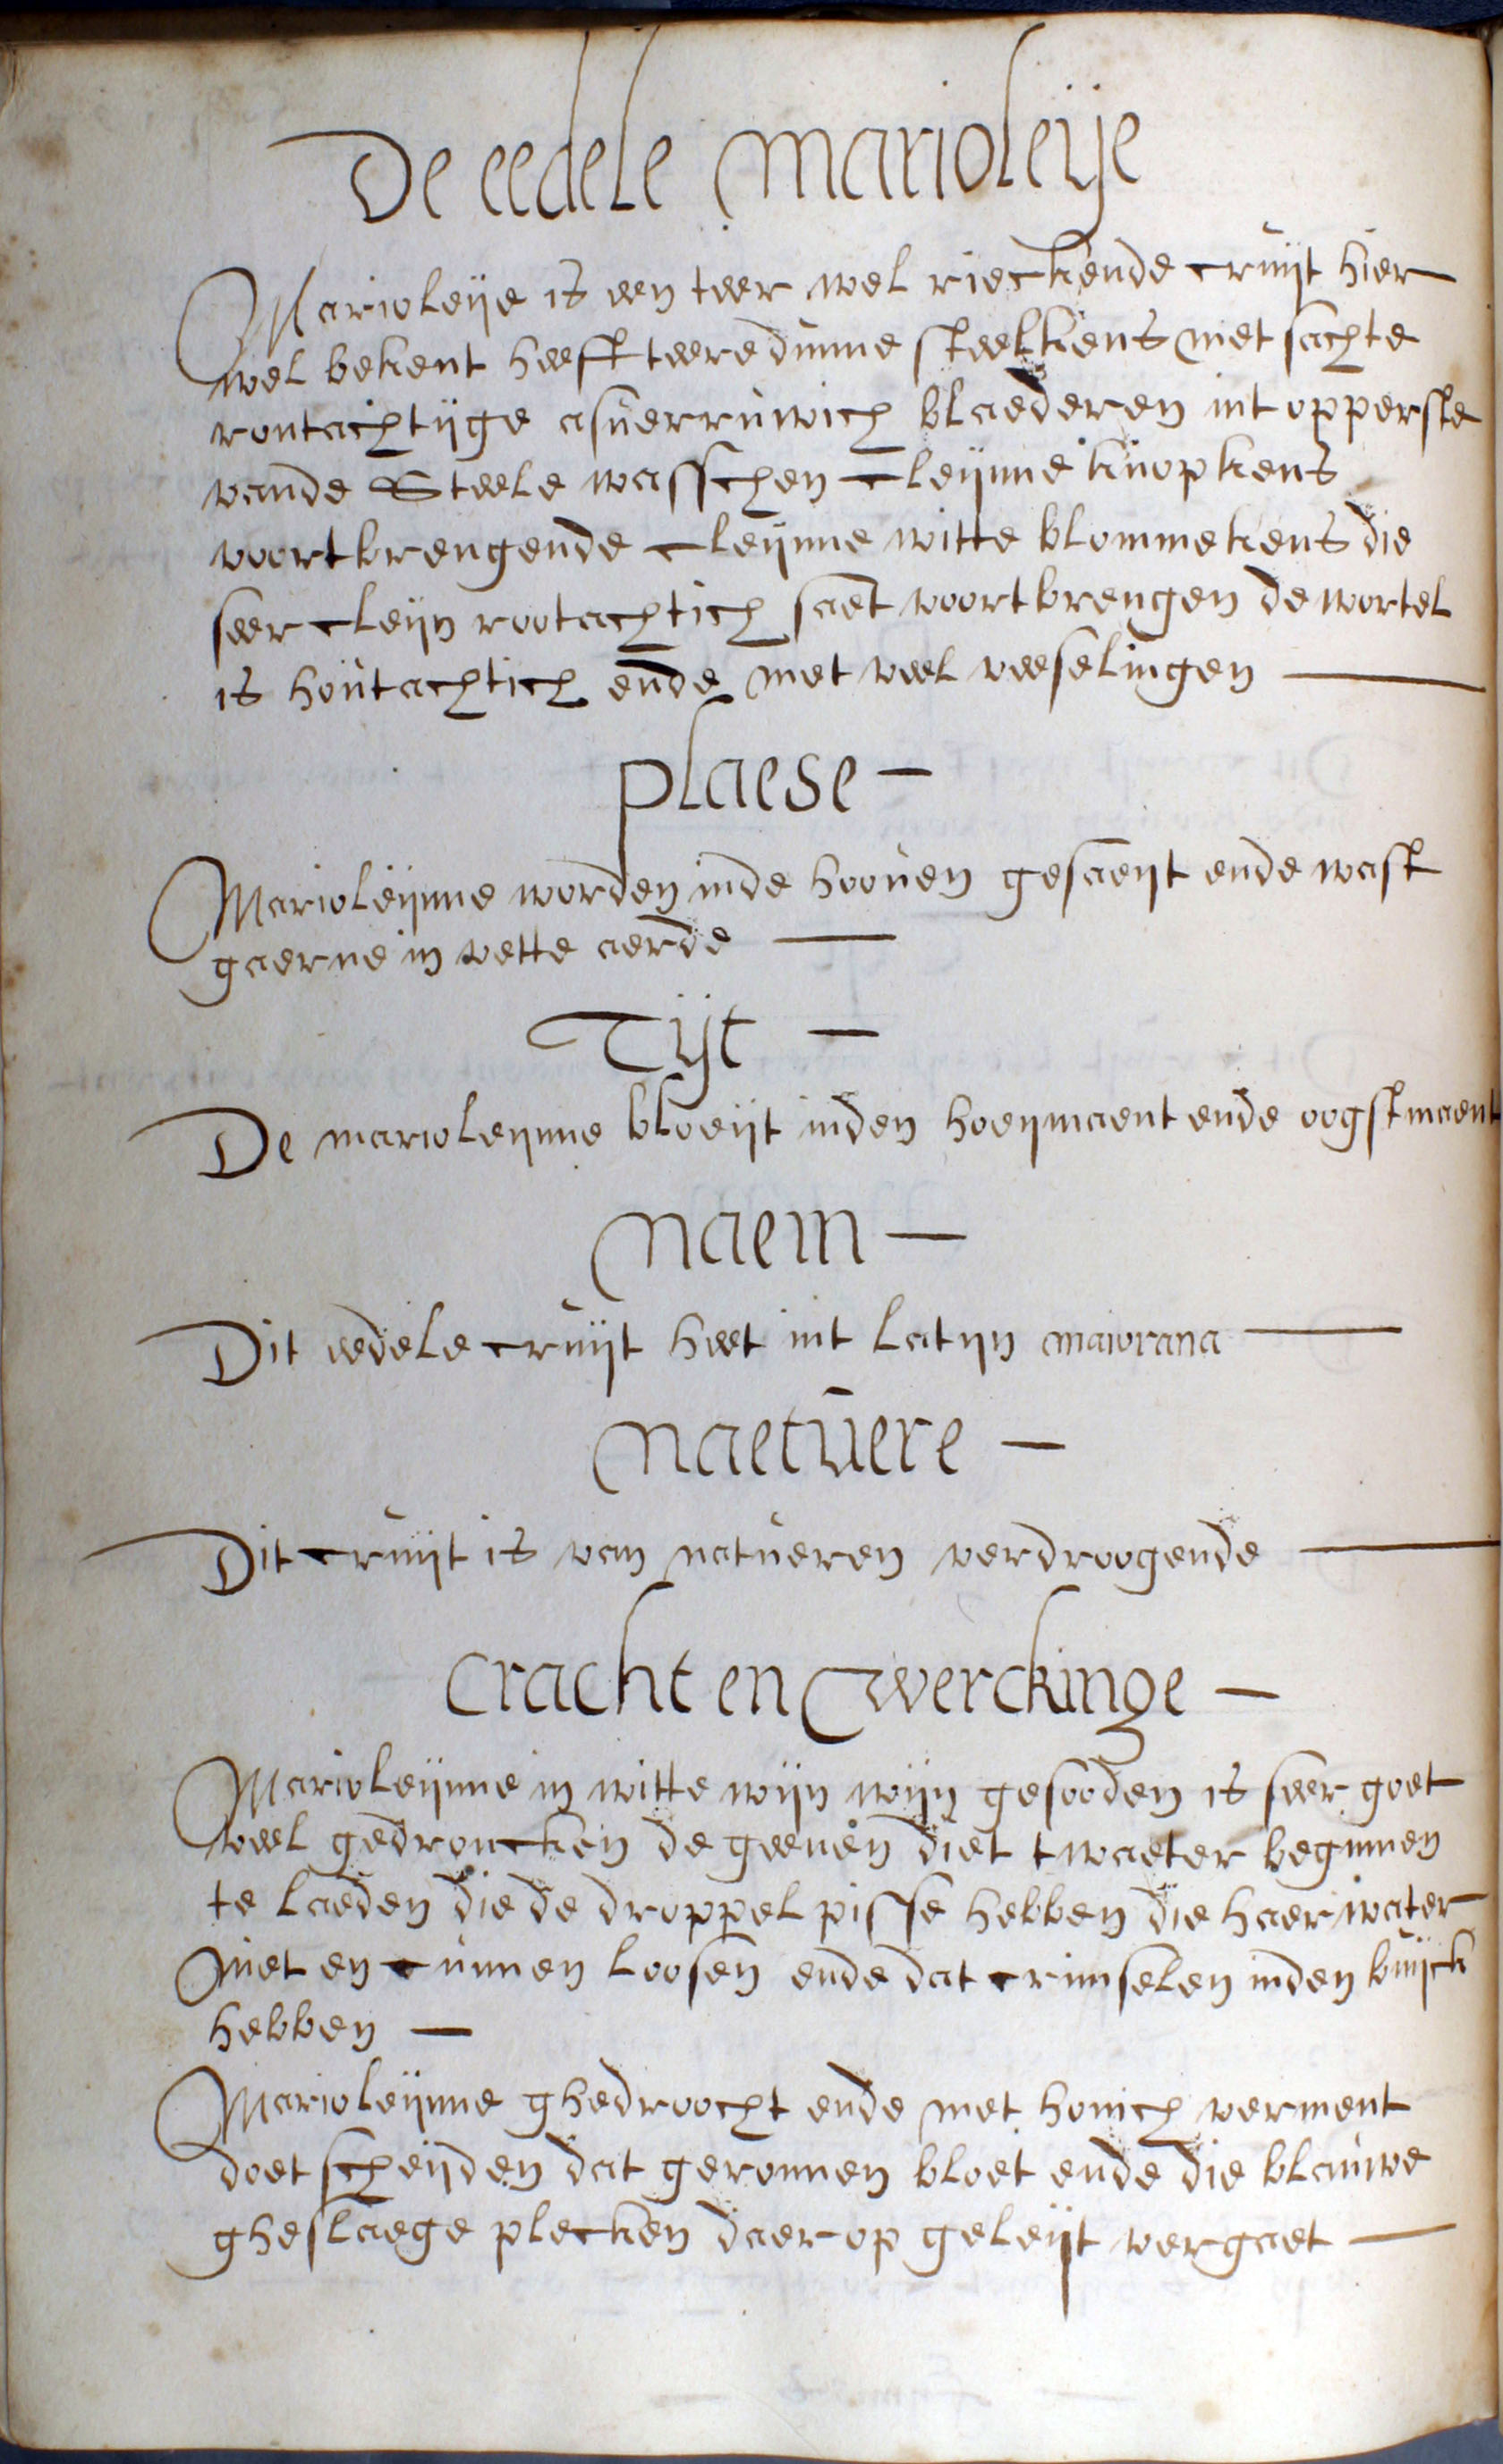 De eedele marioleije
Marioleije is een teer wel rieckende cruijt hier
wel bekent heeft teere dunne steelkens met sachte
rontachtijge asverruwich blaederen int opperste
vande Steele wasschen cleijnne knopkens
voortbrengende cleijnne witte blommekens die
seer cleijn rootachtich saet voortbrengen de wortel
is houtachtich ende met veel veeselingen —
plaese —
Marioleijnne worden inde hooven gesaeijt ende wast
gaerne in vette aerde —
Tijt —
De marioleijnne bloeijt inden hoeijmaent ende oogstmaent
naem —
Dit eedele cruijt heet int Latijn maiorana —
naetuere —
Dit cruijt is van natueren verdroogende —
cracht en werckinge —
Marioleijnne in witte wijn wijn gesooden is seer goet
veel gedroncken de geenen diet twaeter beginnen
te laeden die de droppel pisse hebben die haer water
niet en cunnen loosen ende dat crimselen inden buijck
hebben —
Marioleijnne ghedroocht ende met honich verment
doet scheijden dat geronnen bloet ende die blauwe
gheslaege plecken daer op geleijt vergaet —